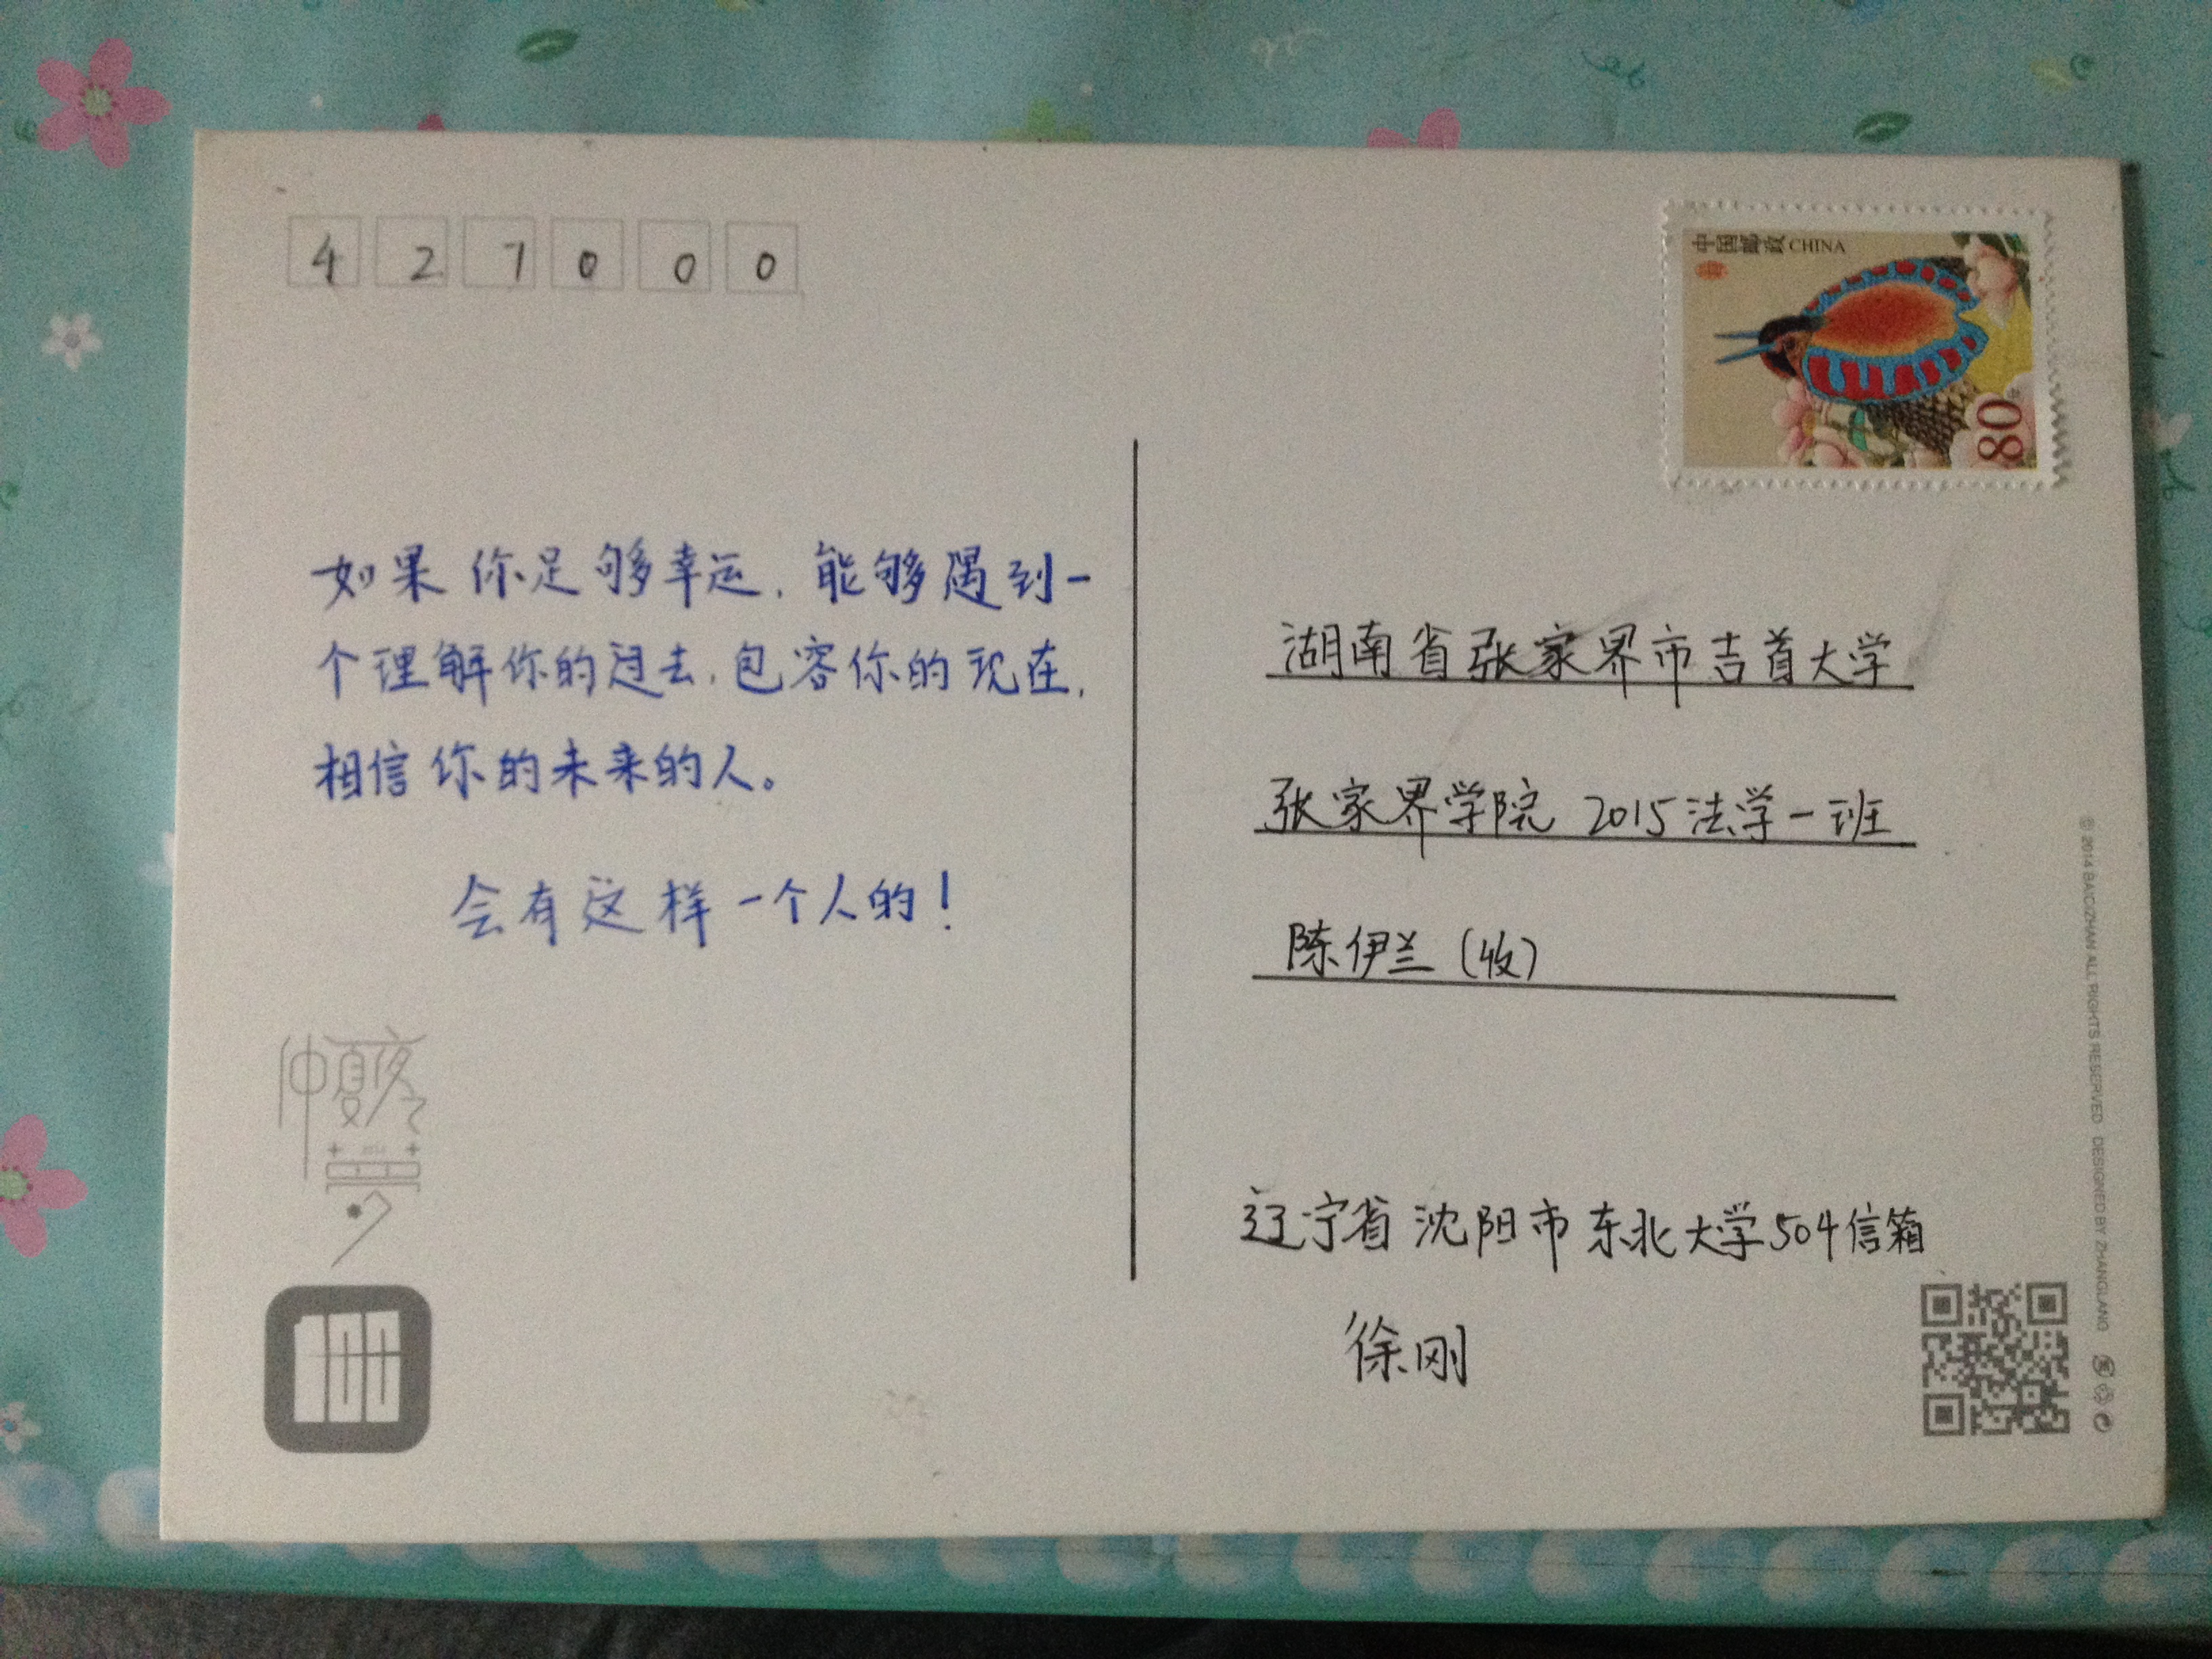 427000
中国邮政 CHINA
80
如果你足够幸运，能够遇到一
个理解你的过去，包容你的现在，
相信你的未来的人。
会有这样一个人的！
湖南省张家界市吉首大学
张家界学院 2015法学一班
陈伊兰（收）
辽宁省沈阳市东北大学504信箱
徐刚
仲夏夜
梦
© 2014 BAICIZHAN ALL RIGHTS RESERVED DESIGNED BY ZHANGLANG